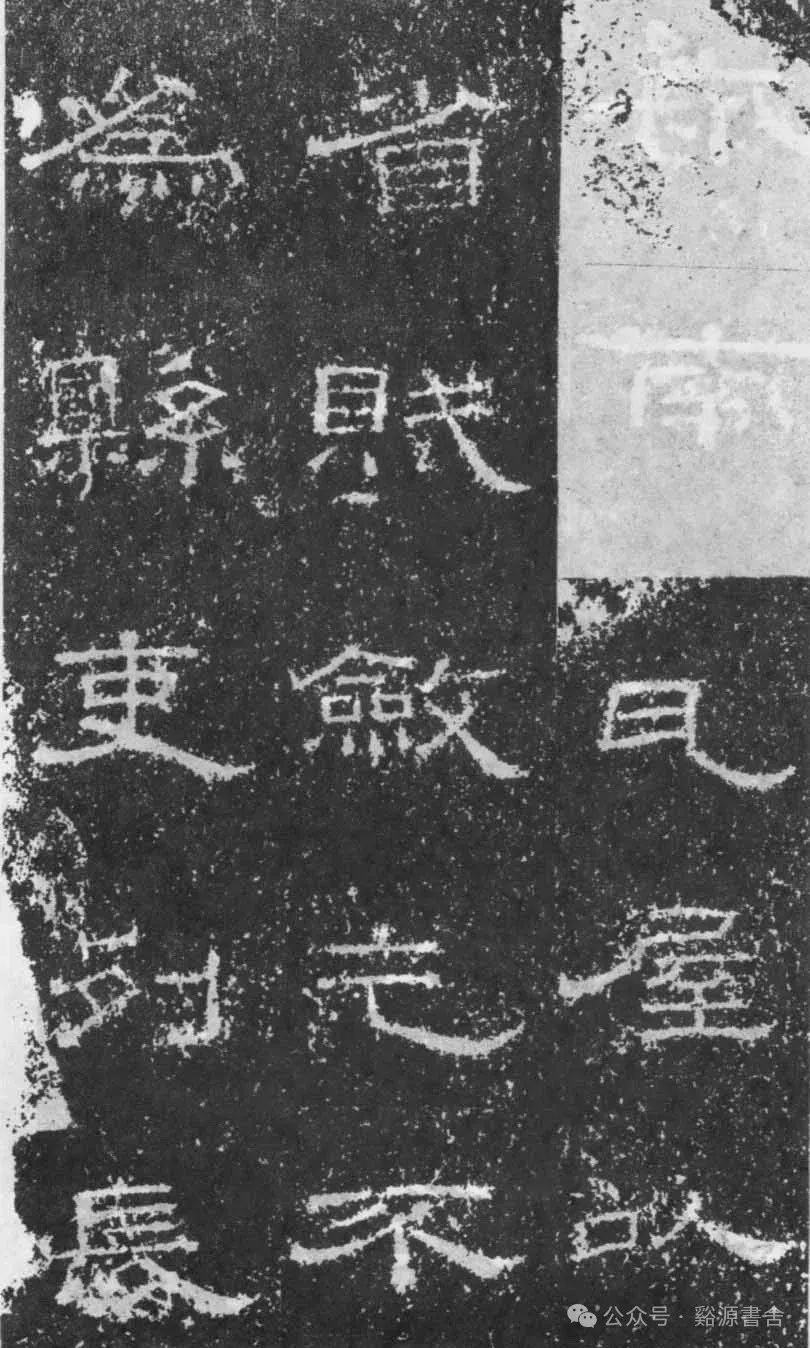 瓦屋以
省賦斂乞不
為縣吏列長
公众号·谿源書舍